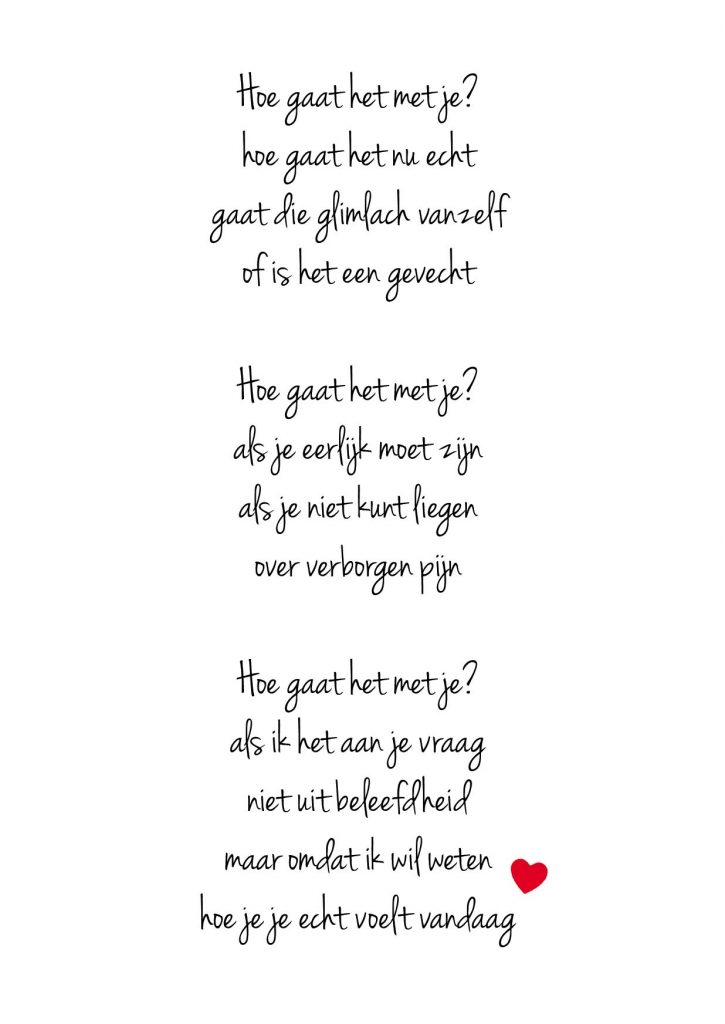 Hoe gaat het met je?
hoe gaat het nu echt
gaat die glimlach vanzelf
of is het een gevecht
Hoe gaat het met je?
als je eerlijk moet zijn
als je niet kunt liegen
over verborgen pijn
Hoe gaat het met je?
als ik het aan je vraag
niet uit beleefdheid
maar omdat ik wil weten
hoe je je echt voelt vandaag